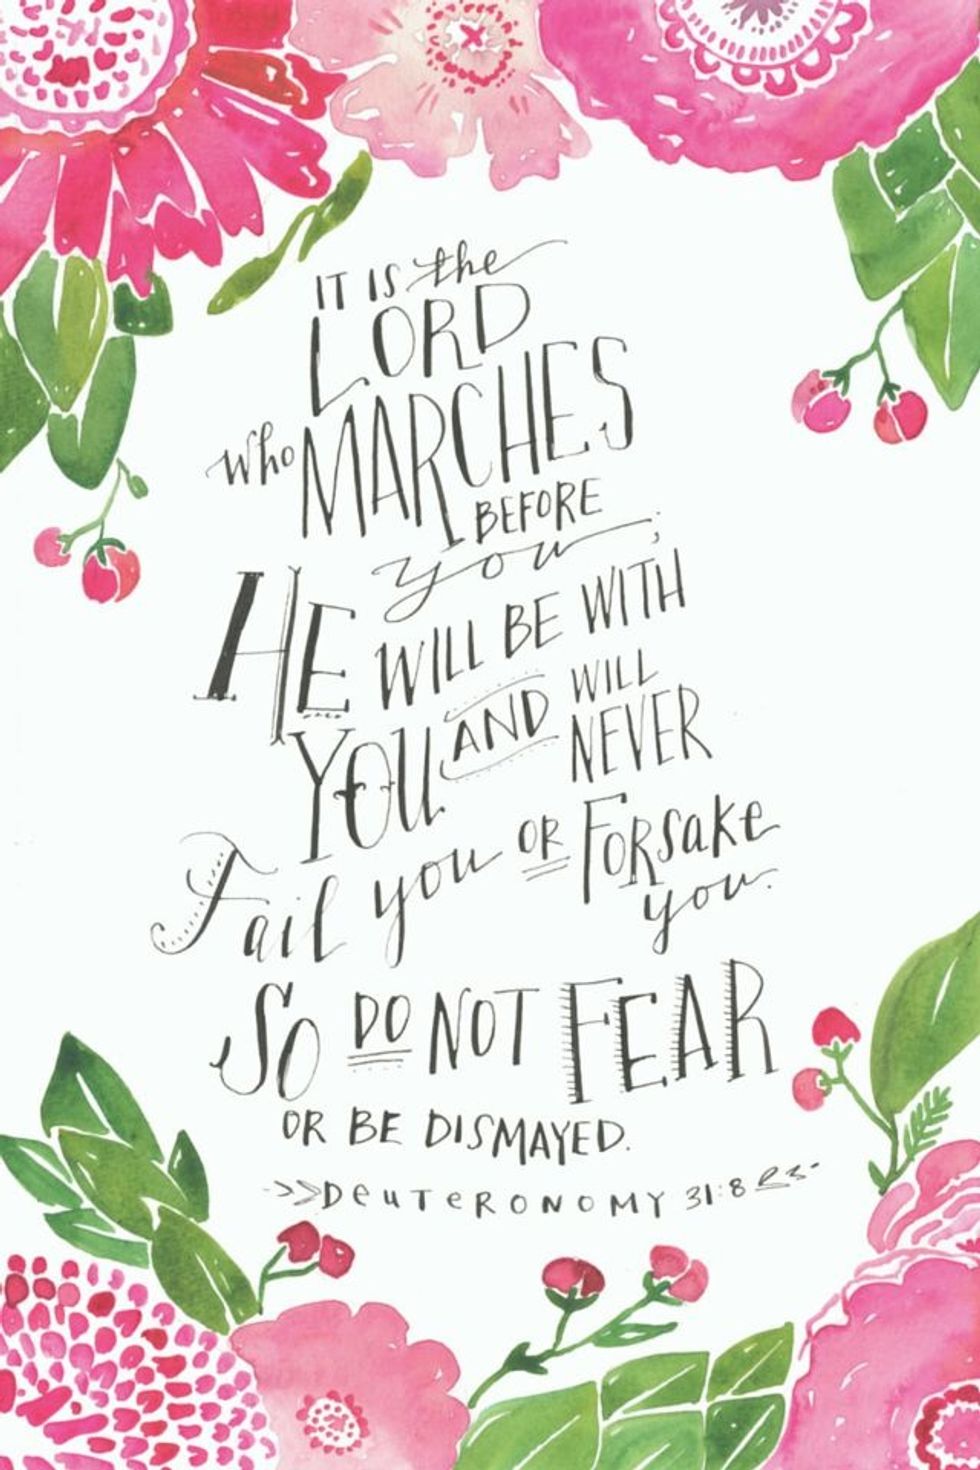 IT IS the
LORD
who MARCHES
BEFORE
you;
HE WILL BE WITH
YOU AND WILL
NEVER
Fail you OR FORsake
you.
So DO NOT FEAR
OR BE DISMAYED.
->>DeuTeRONOMY 31:8